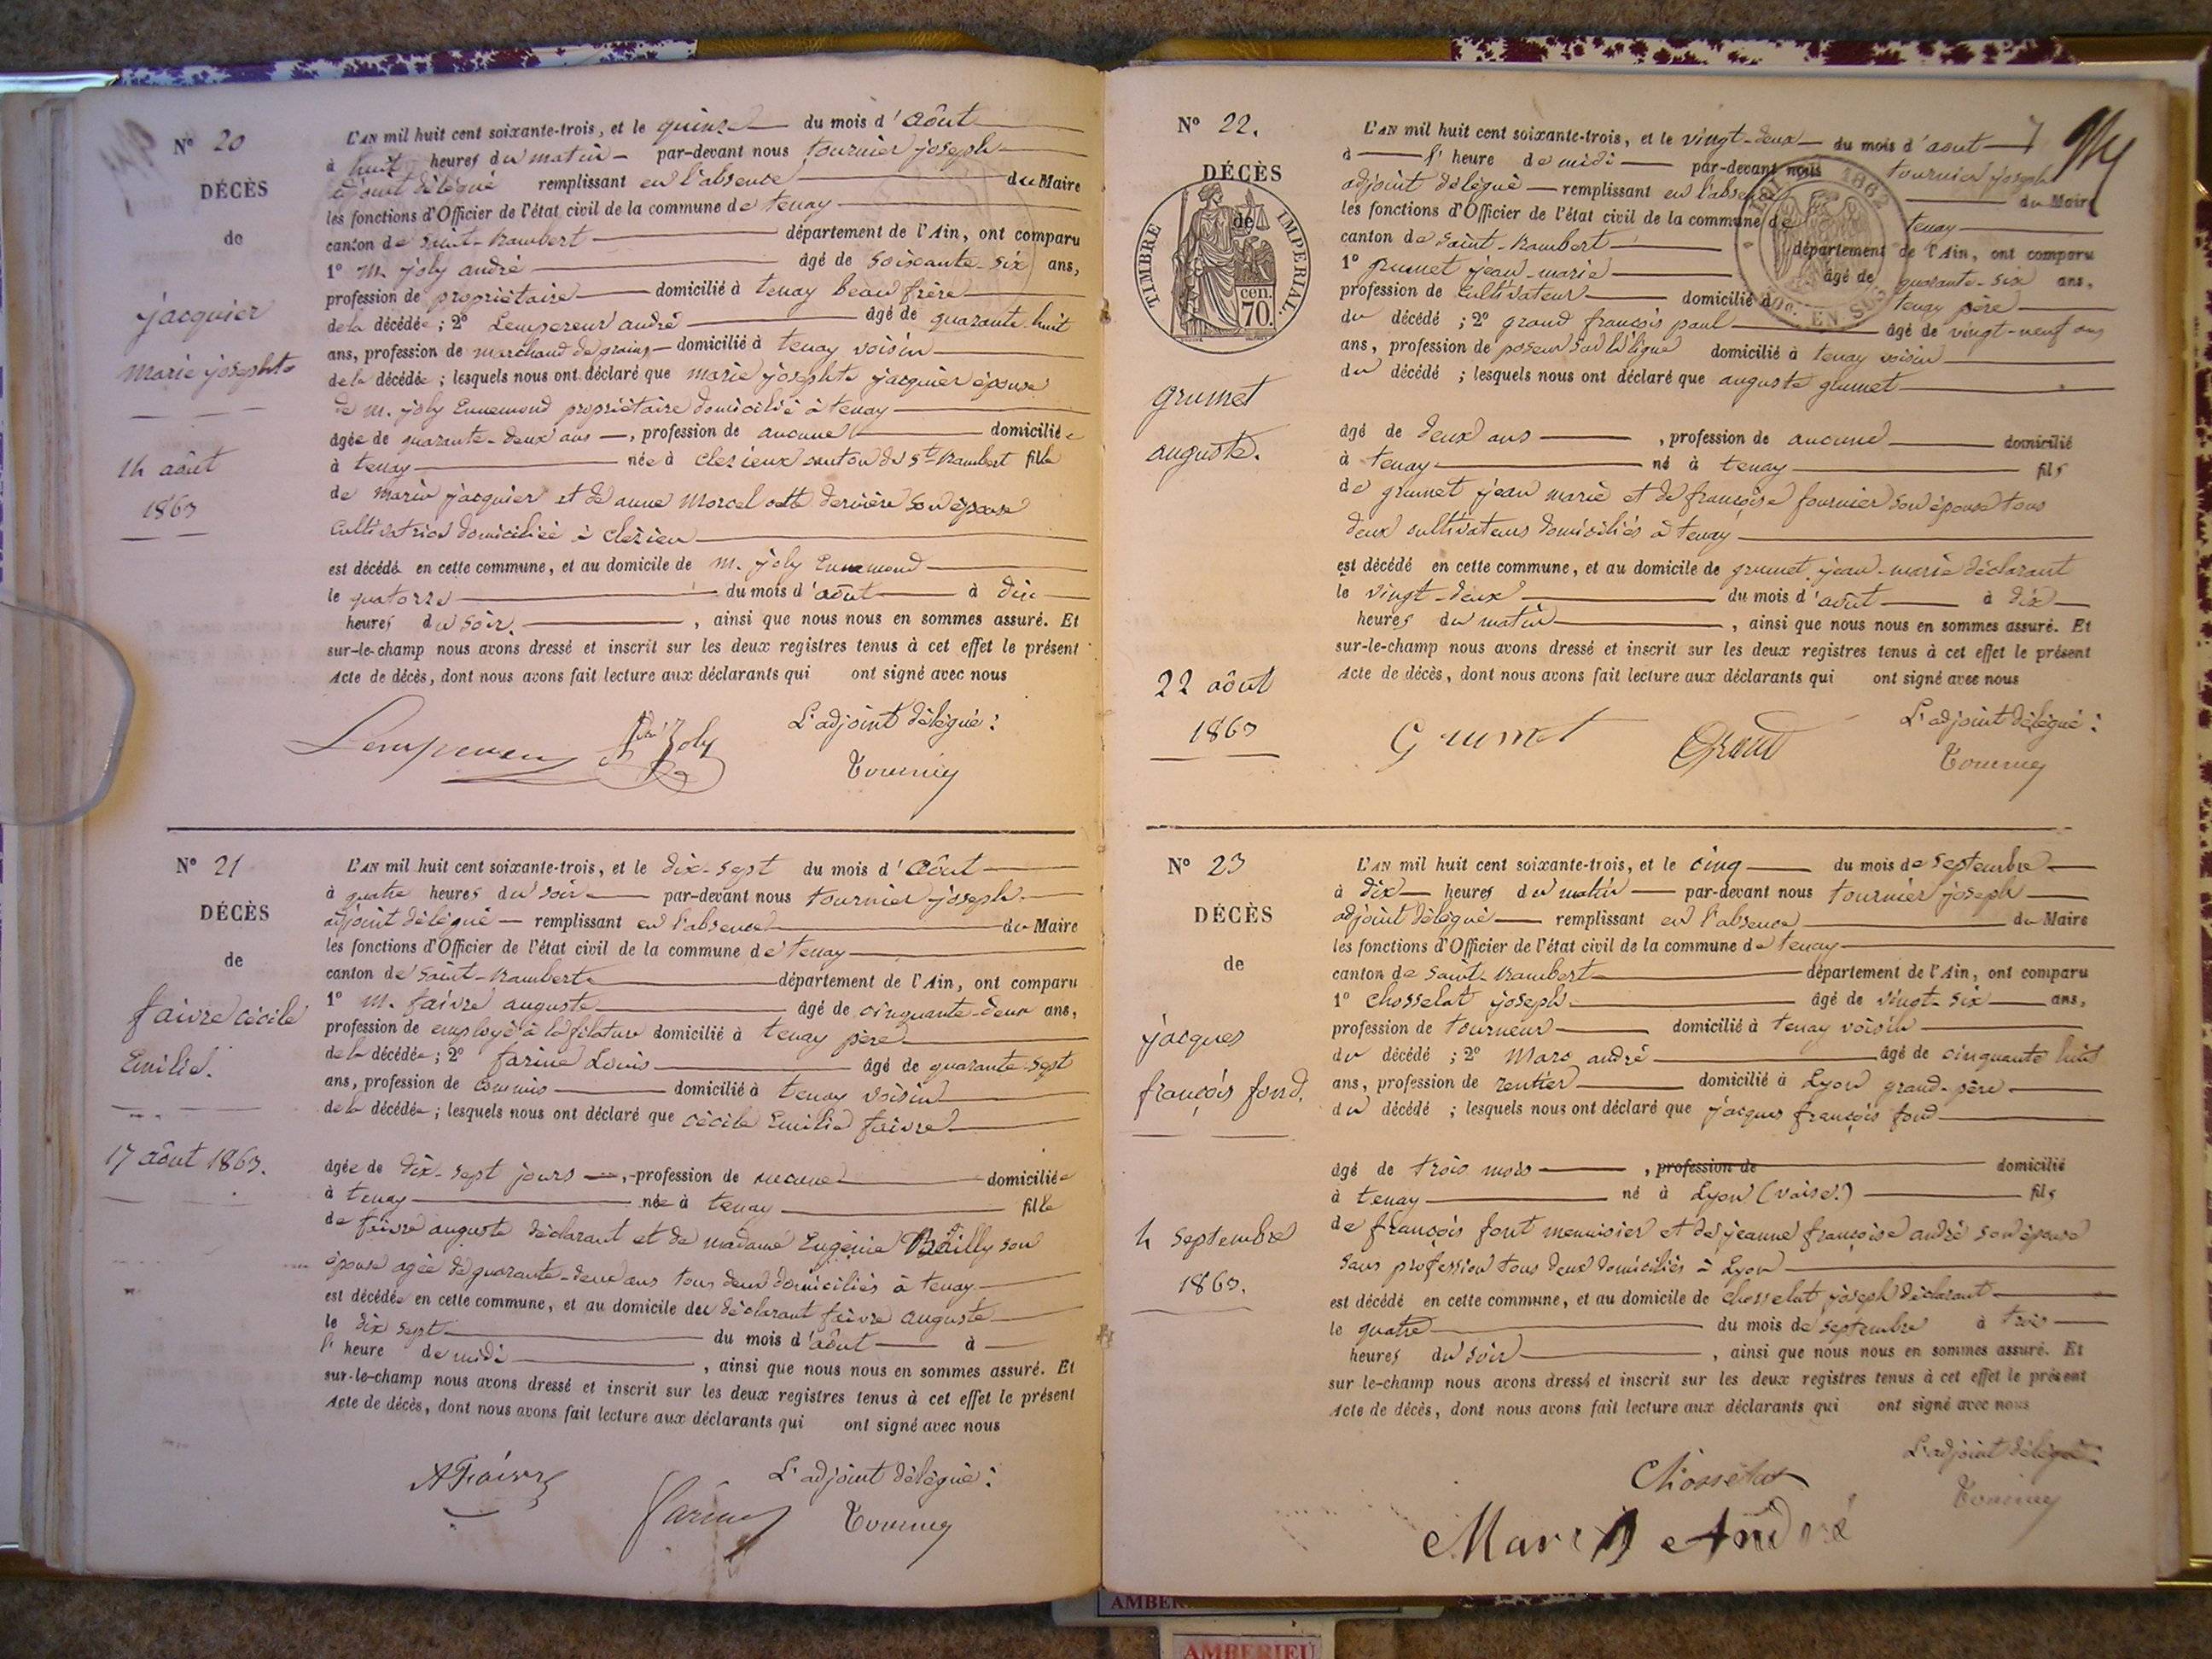 N° 20
DÉCÈS
de
jacquier
marie josephte
14 août
1863
L'AN mil huit cent soixante-trois, et le quinze du mois d'août
à huit heures du matin par-devant nous tournier joseph
adjoint délégué remplissant en l'absence du Maire
les fonctions d'Officier de l'état civil de la commune de tenay
canton de Saint-Rambert département de l'Ain, ont comparu
1° M. joly andré âgé de soixante-six ans,
profession de propriétaire domicilié à tenay beau frère
de la décédée ; 2° Lempereur andré âgé de quarante huit
ans, profession de marchand de grains domicilié à tenay voisin
de la décédée ; lesquels nous ont déclaré que marie josephte jacquier épouse
de M. joly Ennemond propriétaire domicilié à tenay
âgée de quarante-deux ans, profession de aucune domiciliée
à tenay née à clezieux canton de St-Rambert fille
de marin jacquier et de anne morcel cette dernière son épouse
cultivatrice domiciliée à clezieu
est décédé en cette commune, et au domicile de M. joly Ennemond
le quatorze du mois d'août à dix
heures du soir, ainsi que nous nous en sommes assuré. Et
sur-le-champ nous avons dressé et inscrit sur les deux registres tenus à cet effet le présent
Acte de décès, dont nous avons fait lecture aux déclarants qui ont signé avec nous
L'adjoint délégué :
Lempereur Joly
N° 21
DÉCÈS
de
faivre cécile
Emilie.
17 août 1863.
L'AN mil huit cent soixante-trois, et le dix-sept du mois d'août
à quatre heures du soir par-devant nous tournier joseph
adjoint délégué remplissant en l'absence du Maire
les fonctions d'Officier de l'état civil de la commune de tenay
canton de Saint-Rambert département de l'Ain, ont comparu
1° M. faivre auguste âgé de cinquante-deux ans,
profession de employé à la filature domicilié à tenay père
de la décédée ; 2° farine Louis âgé de quarante-sept
ans, profession de commis domicilié à tenay voisin
de la décédée ; lesquels nous ont déclaré que cécile Emilie faivre
âgée de dix-sept jours, profession de aucune domiciliée
à tenay née à tenay fille
de faivre auguste déclarant et de madame Eugénie Bailly son
épouse agée de quarante-deux ans tous deux domiciliés à tenay
est décédée en cette commune, et au domicile du déclarant faivre auguste
le dix sept du mois d'août à
l'heure de midi, ainsi que nous nous en sommes assuré. Et
sur-le-champ nous avons dressé et inscrit sur les deux registres tenus à cet effet le présent
Acte de décès, dont nous avons fait lecture aux déclarants qui ont signé avec nous
L'adjoint délégué :
A Faivre Farine
N° 22.
DÉCÈS
de
TIMBRE IMPERIAL.
cen.
70.
grumet
auguste.
22 août
1863
L'AN mil huit cent soixante-trois, et le vingt-deux du mois d'aout
à l'heure de midi par-devant nous tournier joseph
adjoint délégué remplissant en l'absence du Maire
les fonctions d'Officier de l'état civil de la commune de tenay
canton de Saint-Rambert département de l'Ain, ont comparu
1° grumet jean-marie âgé de quarante-six ans,
profession de cultivateur domicilié à tenay père
du décédé ; 2° grand françois paul âgé de vingt-neuf ans
ans, profession de poseur sur la ligne domicilié à tenay voisin
du décédé ; lesquels nous ont déclaré que auguste grumet
âgé de deux ans, profession de aucune domicilié
à tenay né à tenay fils
de grumet jean marie et de françoise fournier son épouse tous
deux cultivateurs domiciliés à tenay
est décédé en cette commune, et au domicile de grumet jean-marie déclarant
le vingt-deux du mois d'août à dix
heures du matin, ainsi que nous nous en sommes assuré. Et
sur-le-champ nous avons dressé et inscrit sur les deux registres tenus à cet effet le présent
Acte de décès, dont nous avons fait lecture aux déclarants qui ont signé avec nous
L'adjoint délégué :
Grumet Grand
N° 23
DÉCÈS
de
jacques
françois fond.
4 septembre
1863.
L'AN mil huit cent soixante-trois, et le cinq du mois de septembre
à dix heures du matin par-devant nous tournier joseph
adjoint délégué remplissant en l'absence du Maire
les fonctions d'Officier de l'état civil de la commune de tenay
canton de Saint-Rambert département de l'Ain, ont comparu
1° chosselat joseph âgé de vingt-six ans,
profession de tourneur domicilié à tenay voisin
du décédé ; 2° Marc andré âgé de cinquante huit
ans, profession de rentier domicilié à Lyon grand-père
du décédé ; lesquels nous ont déclaré que jacques françois fond
âgé de trois mois, profession de domicilié
à tenay né à Lyon (vaise.) fils
de françois font menuisier et de jeanne françoise andré son épouse
sans profession tous deux domiciliés à Lyon
est décédé en cette commune, et au domicile de chosselat joseph déclarant
le quatre du mois de septembre à trois
heures du soir, ainsi que nous nous en sommes assuré. Et
sur le-champ nous avons dressé et inscrit sur les deux registres tenus à cet effet le présent
Acte de décès, dont nous avons fait lecture aux déclarants qui ont signé avec nous
L'adjoint délégué :
Chosselat
Marc André
AMBERIEU